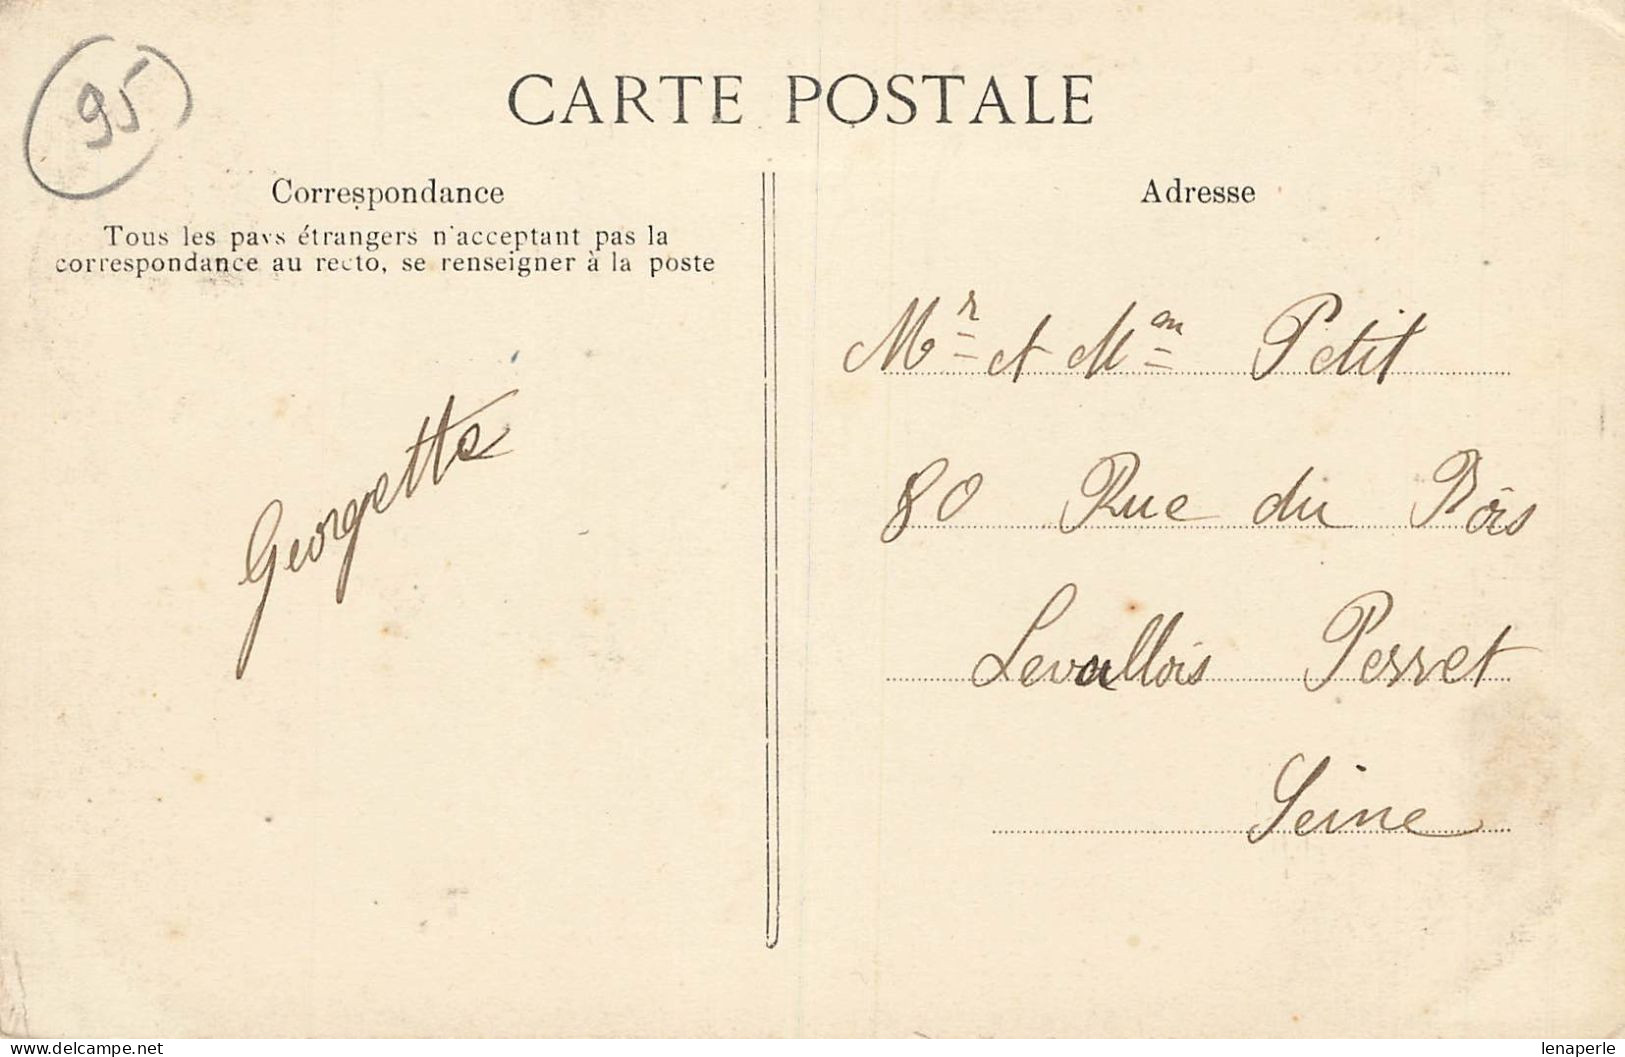 95
CARTE POSTALE
Correspondance
Tous les pays étrangers n'acceptant pas la
correspondance au recto, se renseigner à la poste
Georgette
Adresse
Mr et Mm Petit
80 Rue du Bois
Levallois Perret
Seine
lenaperle